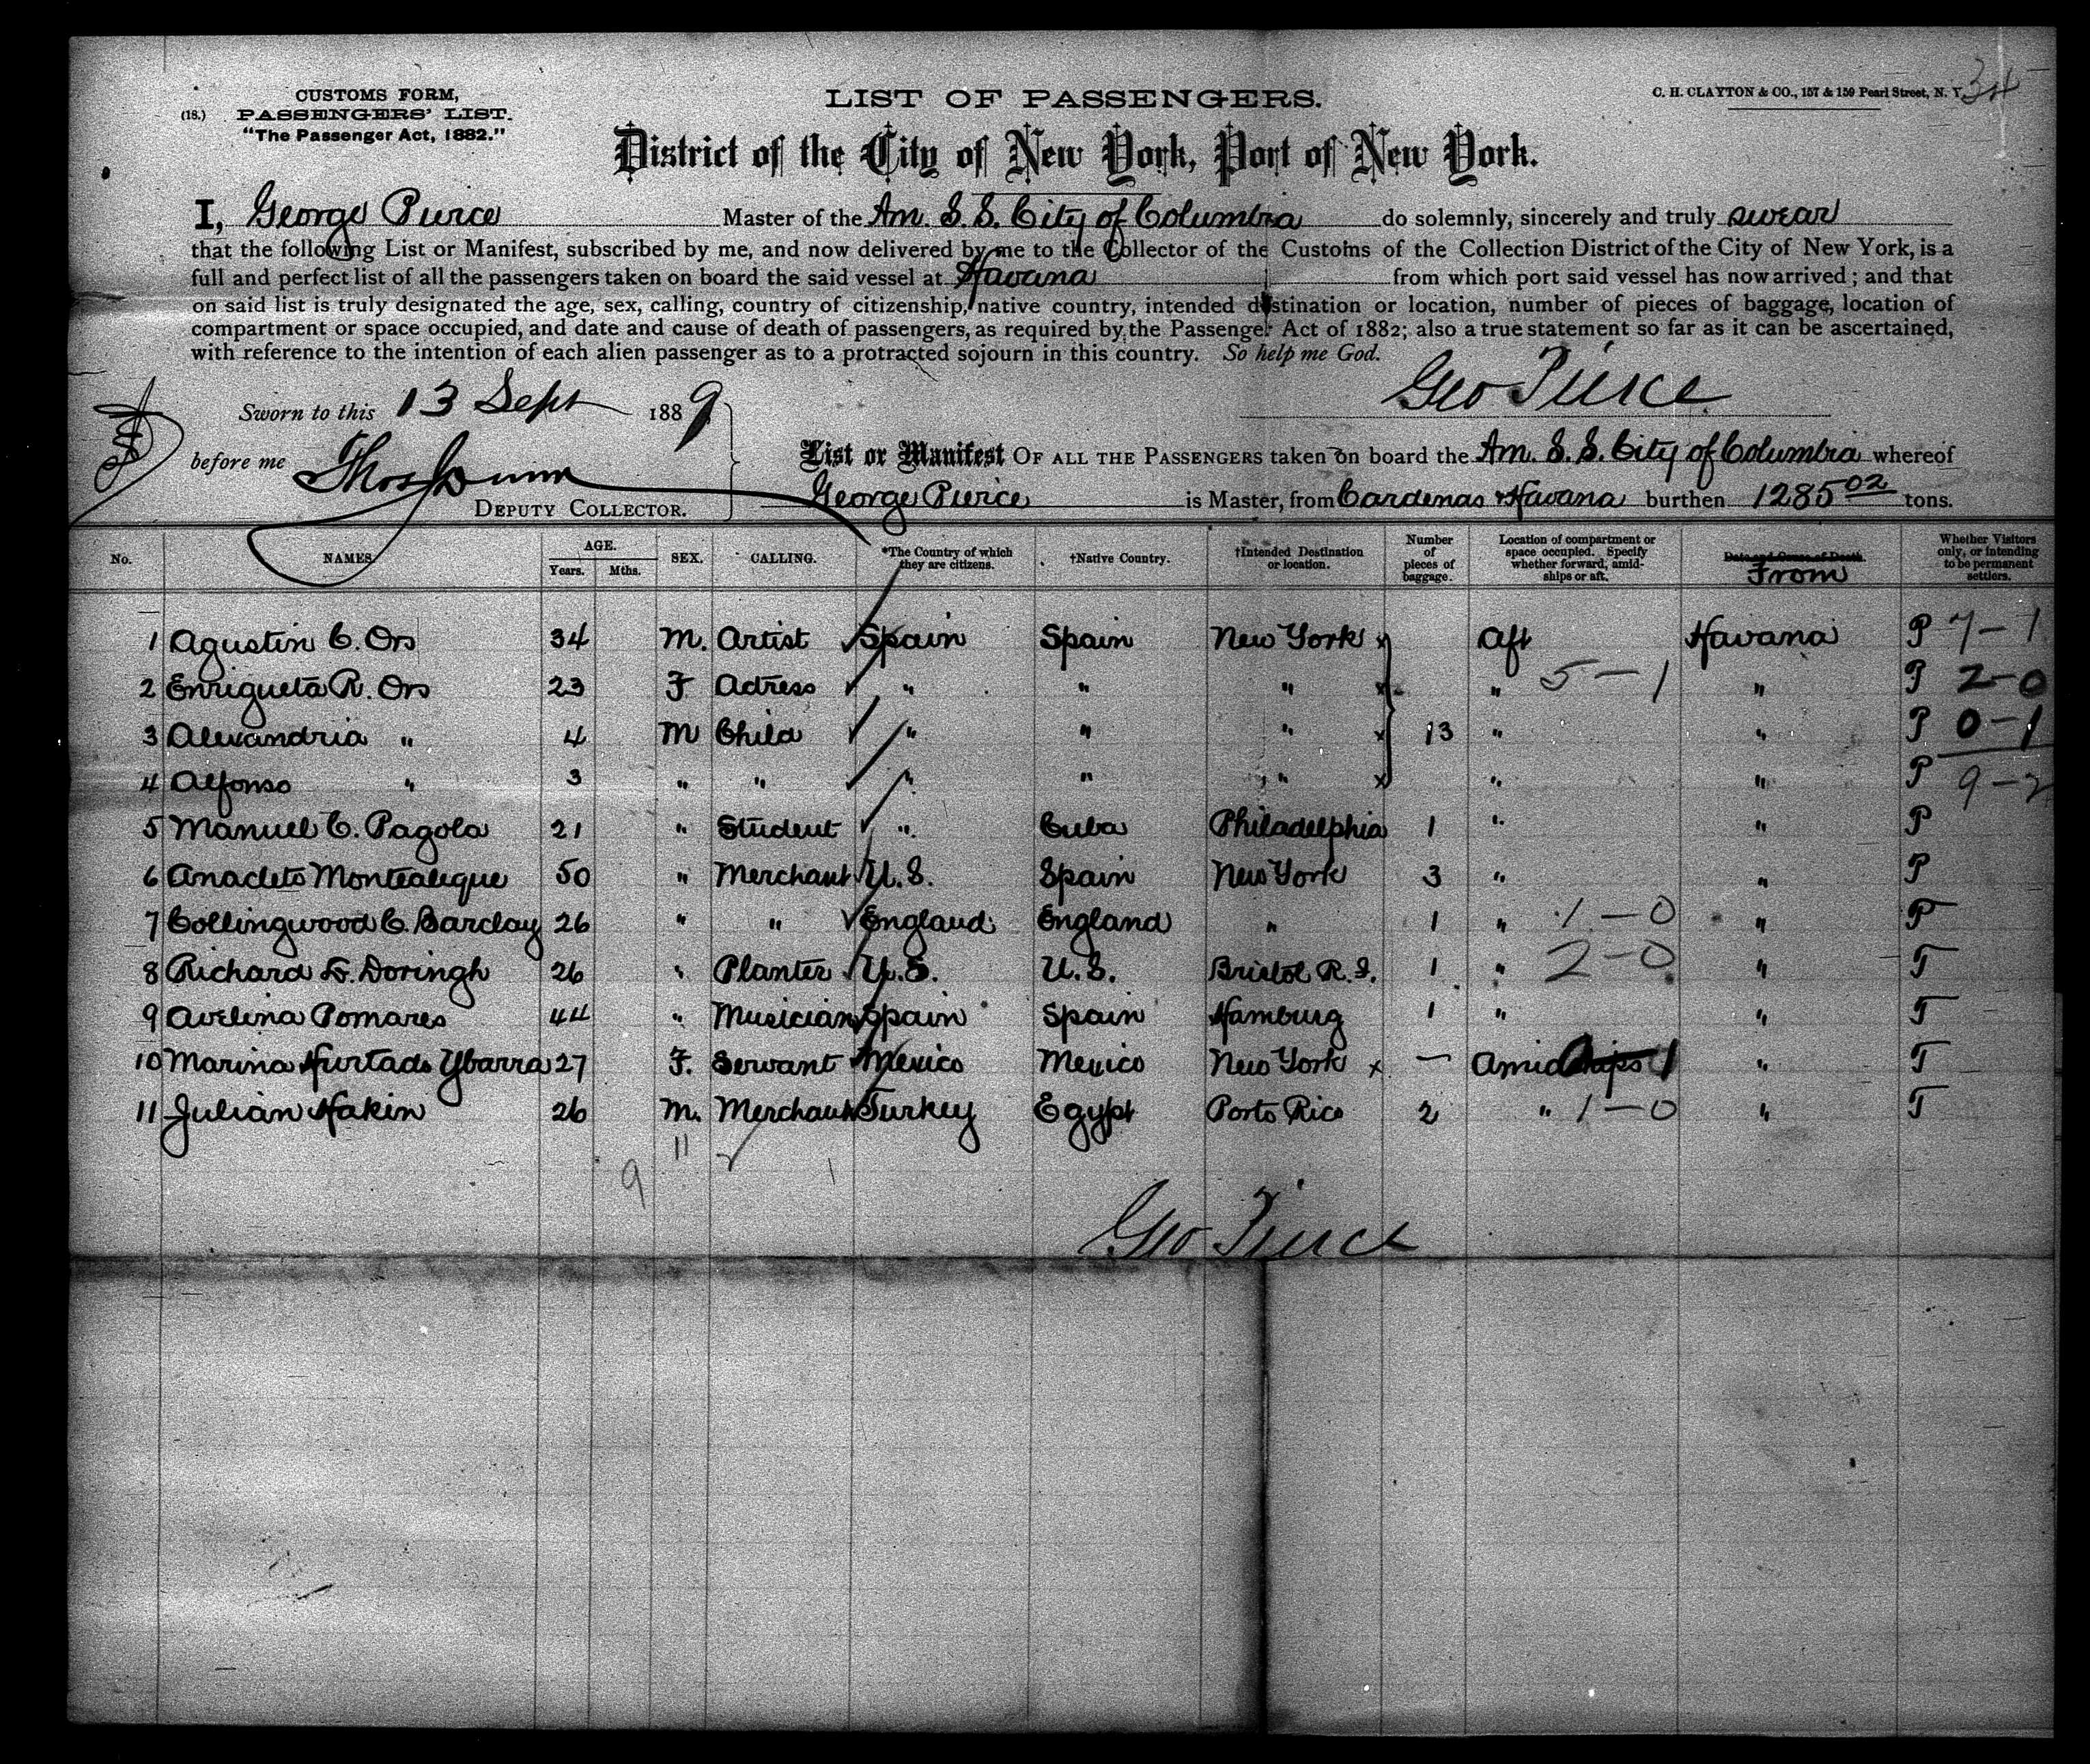 CUSTOMS FORM,
(18.) PASSENGERS' LIST.
"The Passenger Act, 1882."
LIST OF PASSENGERS.
C. H. CLAYTON & CO., 157 & 159 Pearl Street, N. Y.
34
District of the City of New York, Port of New York.
I, George Pierce Master of the Am. S. S. City of Columbia do solemnly, sincerely and truly swear
that the following List or Manifest, subscribed by me, and now delivered by me to the Collector of the Customs of the Collection District of the City of New York, is a
full and perfect list of all the passengers taken on board the said vessel at Havana from which port said vessel has now arrived; and that
on said list is truly designated the age, sex, calling, country of citizenship, native country, intended destination or location, number of pieces of baggage, location of
compartment or space occupied, and date and cause of death of passengers, as required by the Passenger Act of 1882; also a true statement so far as it can be ascertained,
with reference to the intention of each alien passenger as to a protracted sojourn in this country. So help me God.
Geo Pierce
Sworn to this 13 Sept 1889
before me Thos Dunn
DEPUTY COLLECTOR.
List or Manifest OF ALL THE PASSENGERS taken on board the Am. S. S. City of Columbia whereof
George Pierce is Master, from Cardenas & Havana burthen 1285 02 tons.
No. NAMES. AGE. Years. Mths. SEX. CALLING. *The Country of which they are citizens. †Native Country. †Intended Destination or location. Number of pieces of baggage. Location of compartment or space occupied. Specify whether forward, amidships or aft. Date and Cause of Death From Whether Visitors only, or intending to be permanent settlers.
1 Agustin C. Ors 34 M. Artist Spain Spain New York x Aft Havana P 7-1
2 Enriqueta R. Ors 23 F Adress " " " x " 5-1 " P 2-0
3 Alexandria " 4 M Child " " " x 13 " " P 0-1
4 Alfonso " 3 " " " " " x " " P 9-2
5 Manuel C. Pagola 21 " Student " Cuba Philadelphia 1 " " P
6 Anacleto Montealegue 50 " Merchant U.S. Spain New York 3 " " P
7 Collingwood C. Barclay 26 " " England England " 1 " 1-0 " P
8 Richard D. Doringh 26 " Planter U.S. U.S. Bristol R.I. 1 " 2-0 " T
9 Avelina Pomares 44 " Musician Spain Spain Hamburg 1 " " T
10 Marina Hurtado Ybarra 27 F. Servant Mexico Mexico New York x — Amidships " T
11 Julian Hakin 26 M. Merchant Turkey Egypt Porto Rico 2 " 1-0 " T
11
9
Geo Pierce